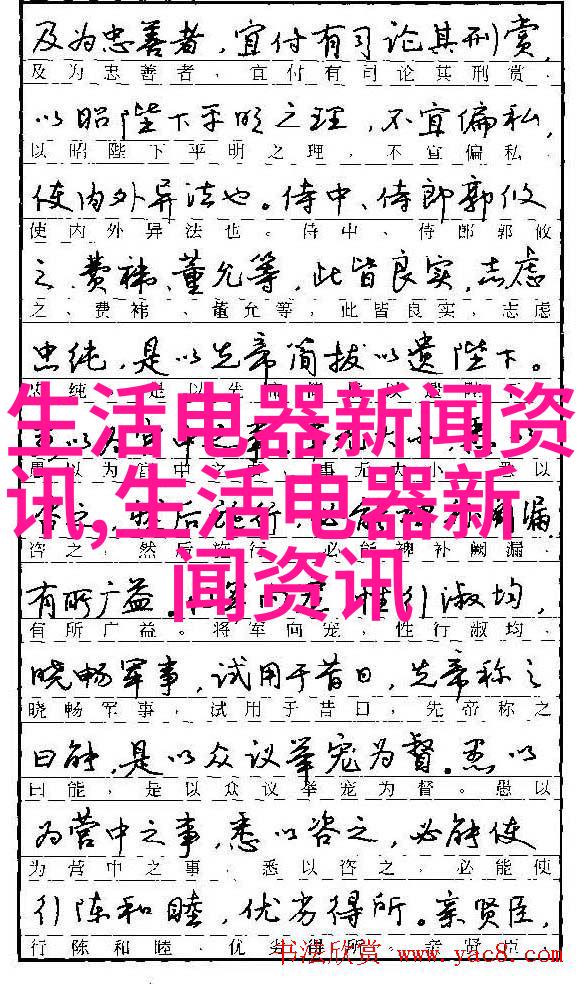 及为忠善者，宜付有司论其刑赏，
及为忠善者，宜付有司论其刑赏，
以昭陛下平明之理，不宜偏私，
以昭陛下平明之理，不宜偏私，
使内外异法也。侍中、侍郎郭攸
使内外异法也。侍中、侍郎郭攸
之、费祎、董允等，此皆良实，志虑
之、费祎、董允等，此皆良实，志虑
忠纯，是以先帝简拔以遗陛下。
纯 是以先
生活电器新闻资
讯,生活电器新
闻资讯
愚以为宫中之事，事无大小，悉以
咨之，然后施行，必能裨补阙漏，
咨之，然后施行，必能裨补阙漏，
有所广益。 性行淑均，
有所广益。将军向宠，性行淑均，
晓畅军事，试用于昔日，先帝称之
晓畅军事，试用于昔日，先帝称之
曰能，是以众议举宠为督。愚以
曰能，是以众议举宠为督。愚以
为营中之事，悉以咨之，必能使
为营中之事，悉以咨之，必能使
行阵和睦，优劣得所。亲贤臣，
行阵和睦，优劣得所。亲贤臣，
书法欣赏 www.yac8.com